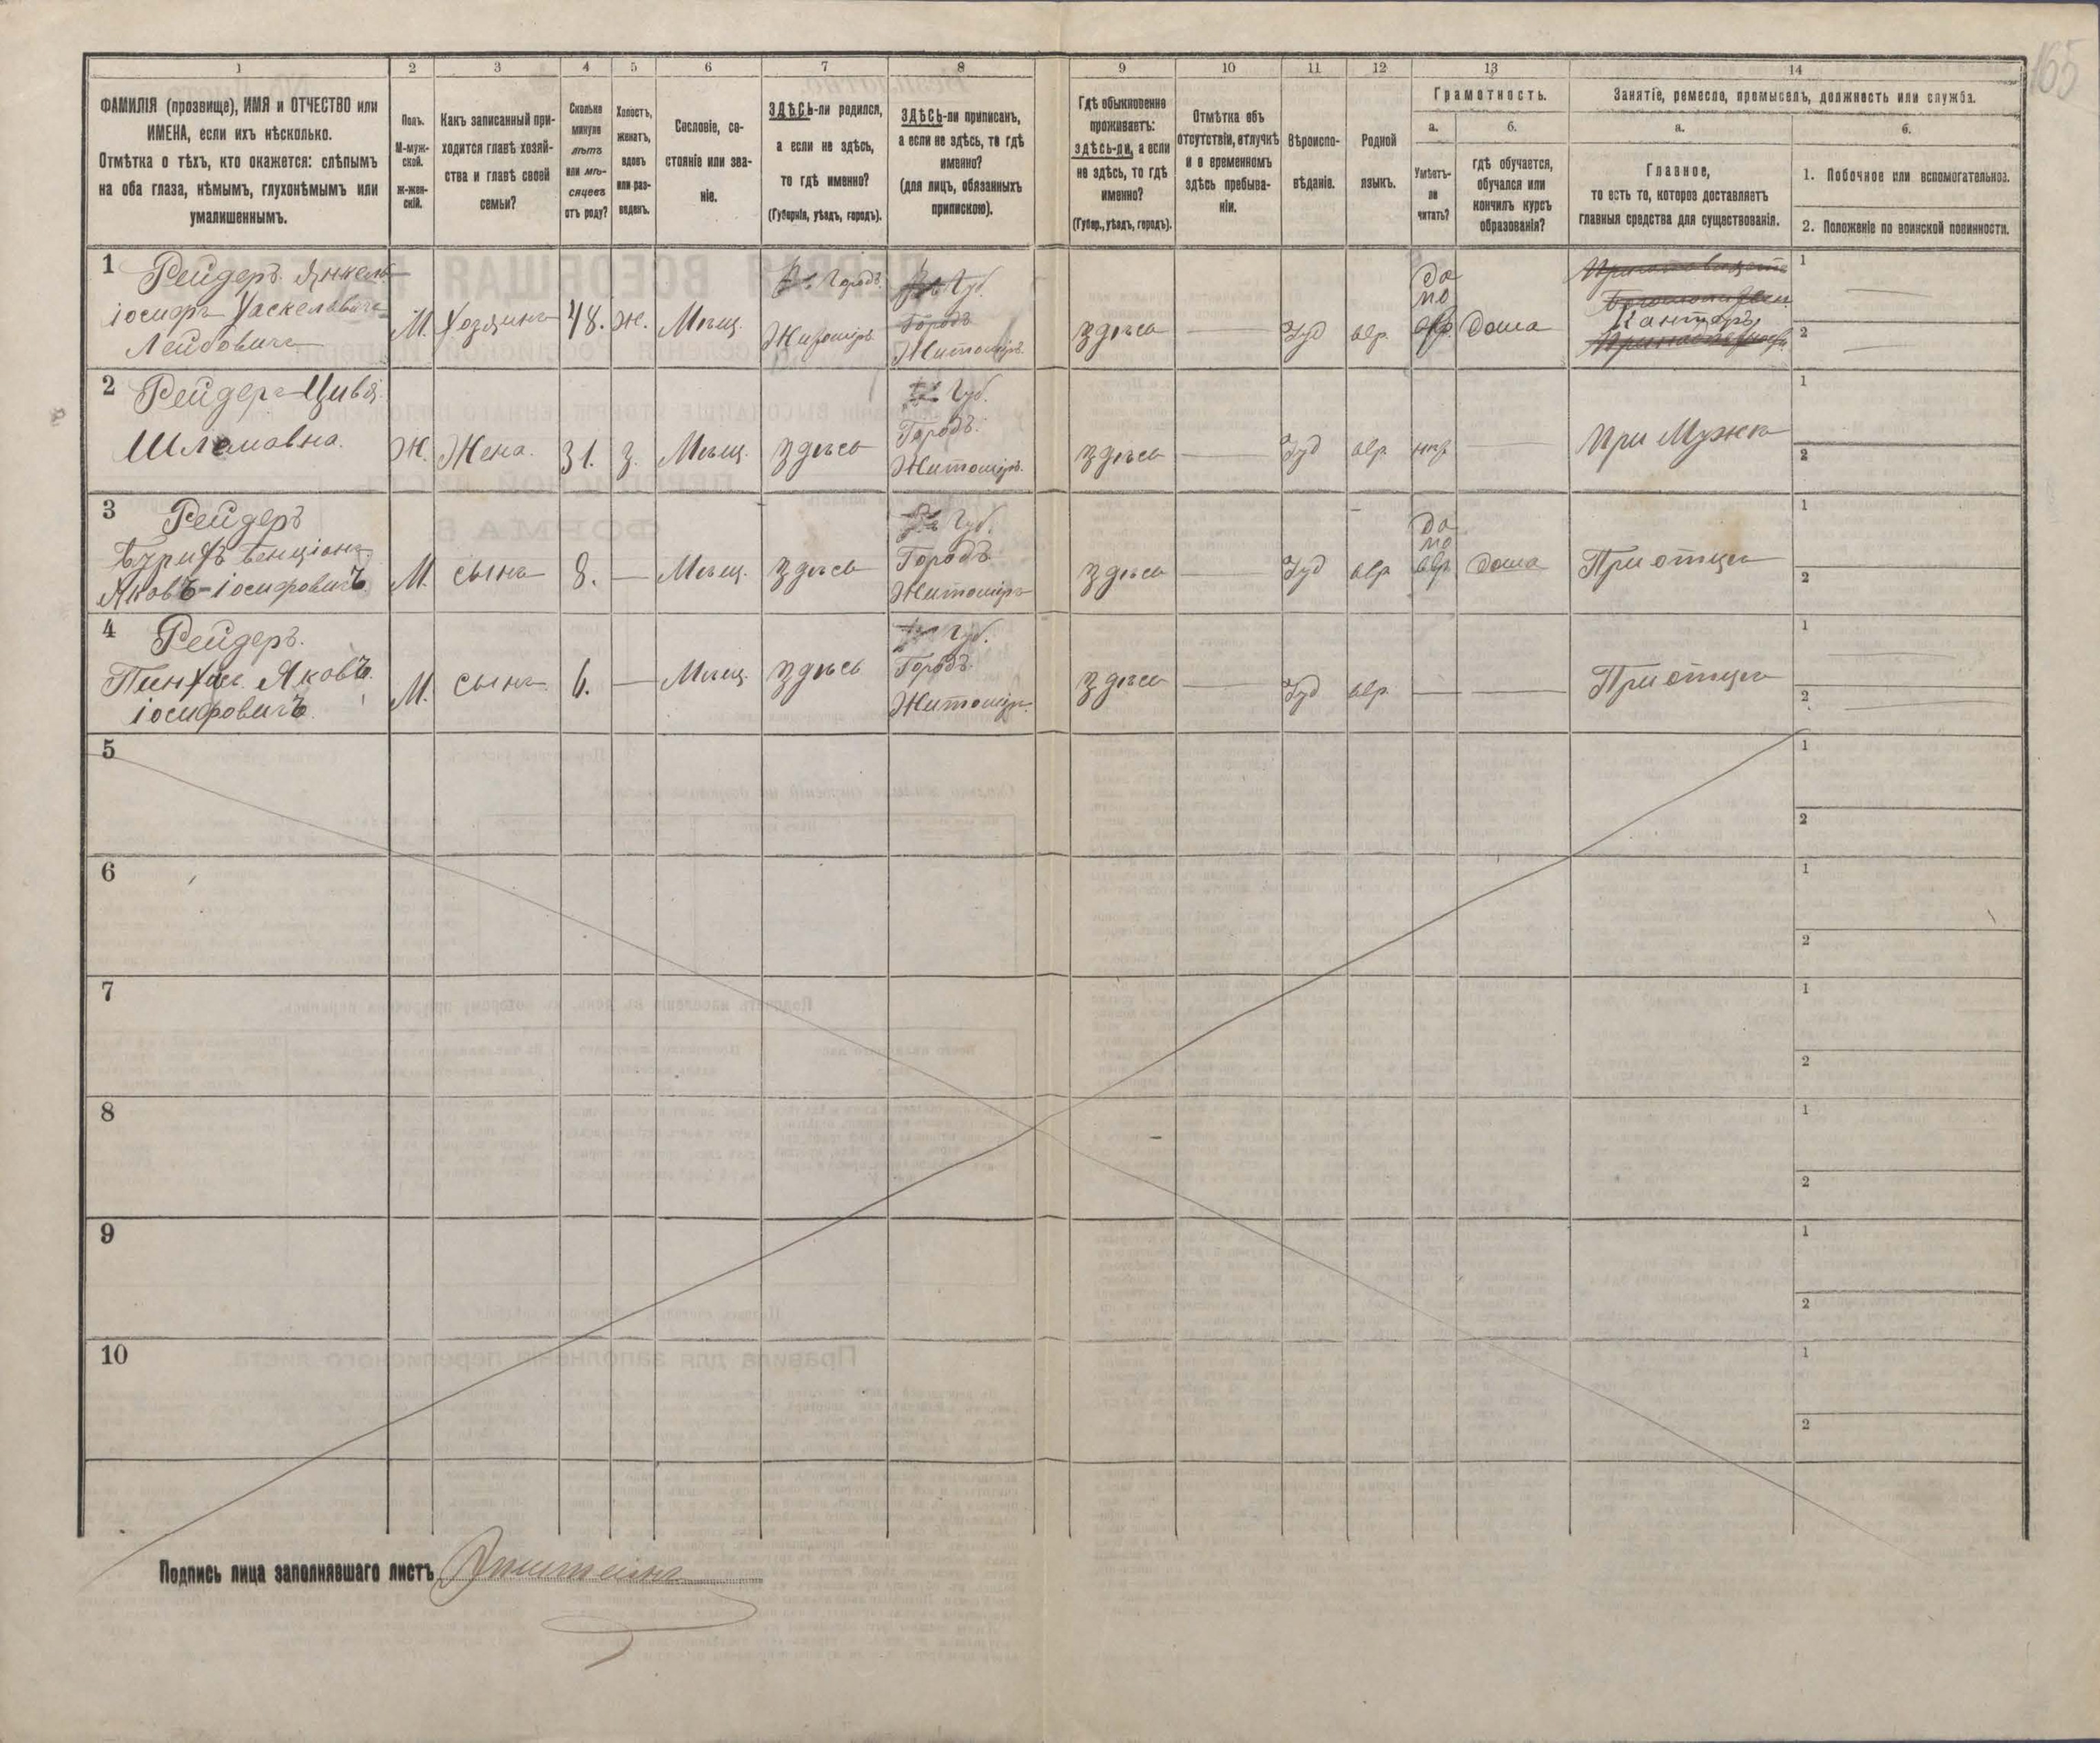 165
1 2 3 4 5 6 7 8 9 10 11 12 13 14
ФАМИЛІЯ (прозвище), ИМЯ и ОТЧЕСТВО или
ИМЕНА, если ихъ нѣсколько.
Отмѣтка о тѣхъ, кто окажется: слѣпымъ
на оба глаза, нѣмымъ, глухонѣмымъ или
умалишеннымъ.
Полъ.
М-муж-
ской.
ж-жен-
скій.
Какъ записанный при-
ходится главѣ хозяй-
ства и главѣ своей
семьи?
Сколько
минуло
лѣтъ
или мѣ-
сяцевъ
отъ роду?
Холостъ,
женатъ,
вдовъ
или раз-
веденъ.
Сословіе, со-
стояніе или зва-
ніе.
ЗДѢСЬ-ли родился,
а если не здѣсь,
то гдѣ именно?
(Губернія, уѣздъ, городъ).
ЗДѢСЬ-ли приписанъ,
а если не здѣсь, то гдѣ
именно?
(для лицъ, обязанныхъ
припискою).
Гдѣ обыкновенно
проживаетъ:
здѣсь-ли, а если
не здѣсь, то гдѣ
именно?
(Губер., уѣздъ, городъ).
Отмѣтка объ
отсутствіи, отлучкѣ
и о временномъ
здѣсь пребыва-
ніи.
Вѣроиспо-
вѣданіе.
Родной
языкъ.
Грамотность.
а.
Умѣетъ-
ли
читать?
б.
гдѣ обучается,
обучался или
кончилъ курсъ
образованія?
Занятіе, ремесло, промыселъ, должность или служба.
а.
Главное,
то есть то, которое доставляетъ
главныя средства для существованія.
б.
1. Побочное или вспомогательное.
2. Положеніе по воинской повинности.
1 Рейдеръ Янкель
Іосифъ Хаскелевичъ
Лейбовичъ
М. Хозяинъ 48. Ж. Мѣщ.
Городъ
Житомиръ
Губ.
Городъ
Житомиръ
здѣсь — Іуд евр. да
по
евр. дома
Канторъ
1 —
2 —
2 Рейдеръ Цивья
Шлемовна.
Ж. Жена. 31. З. Мѣщ. здѣсь
Губ.
Городъ
Житомиръ
здѣсь — Іуд евр. нѣтъ — При Мужѣ
1
2
3 Рейдеръ
Бенціонъ
Яковъ-Іосифовичъ
М. сынъ 8. — Мѣщ. здѣсь
Губ.
Городъ
Житомиръ
здѣсь — Іуд евр. да
по
евр. дома При отцѣ
1
2
4 Рейдеръ.
Пинхас Яковъ
Іосифовичъ
М. сынъ 6. — Мѣщ. здѣсь
Губ.
Городъ
Житомиръ
здѣсь — Іуд евр. — — При отцѣ
1
2
5
1
2
6
1
2
7
1
2
8
1
2
9
1
2
10
1
2
Подпись лица заполнявшаго листъ